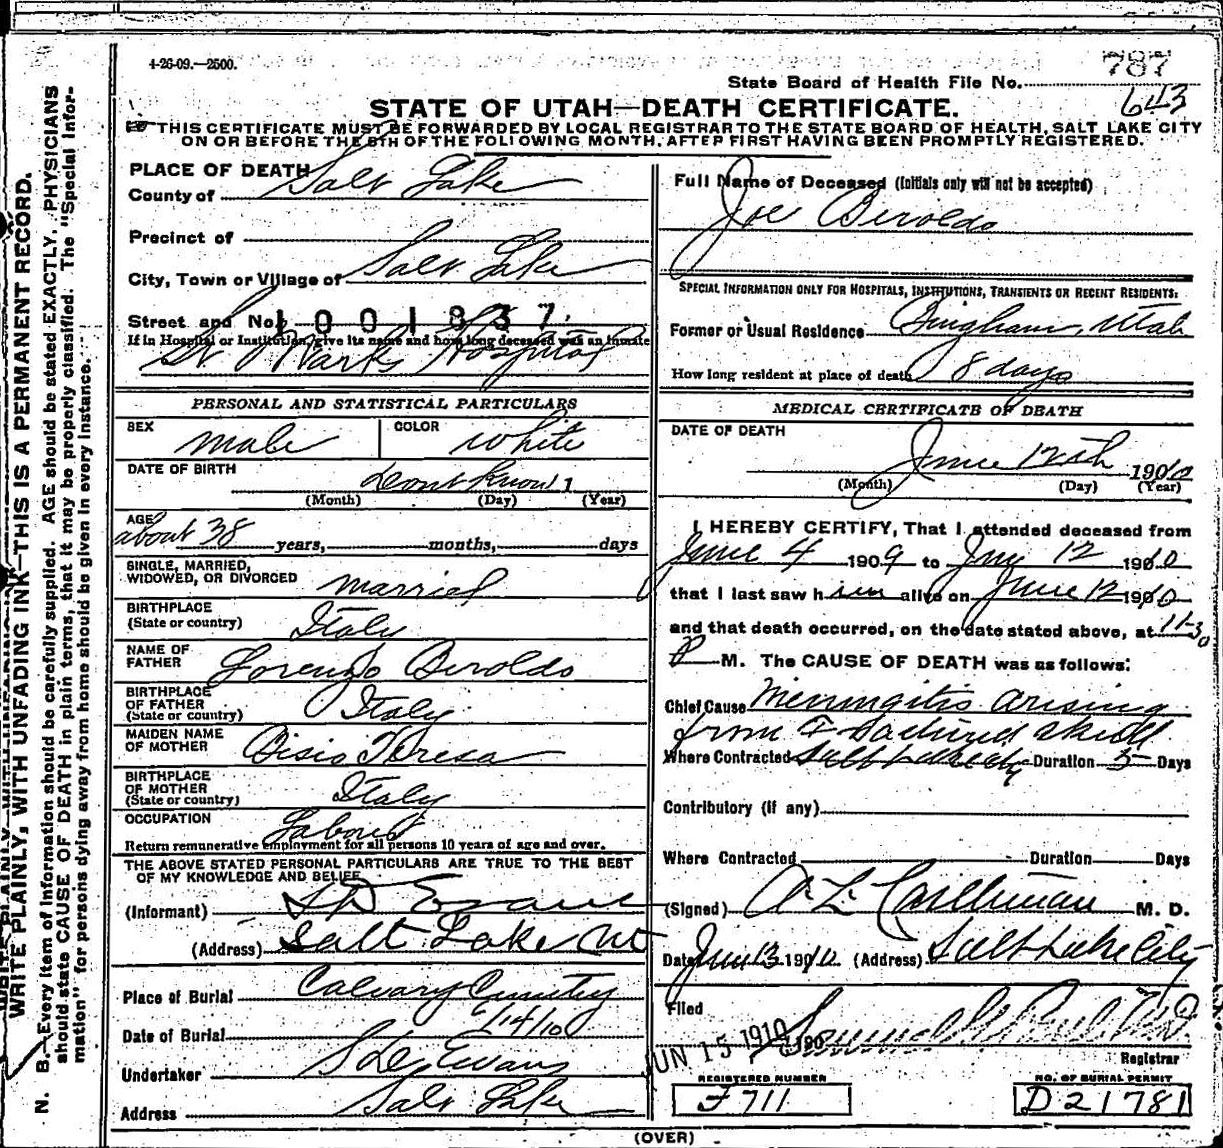 4-26-09.—2500.
787
State Board of Health File No.
643
STATE OF UTAH—DEATH CERTIFICATE.
THIS CERTIFICATE MUST BE FORWARDED BY LOCAL REGISTRAR TO THE STATE BOARD OF HEALTH, SALT LAKE CITY
ON OR BEFORE THE 5TH OF THE FOLLOWING MONTH, AFTER FIRST HAVING BEEN PROMPTLY REGISTERED.
WRITE PLAINLY, WITH UNFADING INK—THIS IS A PERMANENT RECORD.
N. B.—Every item of information should be carefully supplied. AGE should be stated EXACTLY. PHYSICIANS
should state CAUSE OF DEATH in plain terms, that it may be properly classified. The "Special Infor-
mation" for persons dying away from home should be given in every instance.
PLACE OF DEATH
County of Salt Lake
Precinct of
City, Town or Village of Salt Lake
Street and No. 1001837
If in Hospital or Institution, give its name and how long deceased was an inmate
St Marks Hospital
PERSONAL AND STATISTICAL PARTICULARS
SEX male COLOR white
DATE OF BIRTH dont know 1
(Month) (Day) (Year)
AGE about 38 years, months, days
SINGLE, MARRIED,
WIDOWED, OR DIVORCED married
BIRTHPLACE
(State or country) Italy
NAME OF
FATHER Lorenzo Beroldo
BIRTHPLACE
OF FATHER
(State or country) Italy
MAIDEN NAME
OF MOTHER Bisio Teresa
BIRTHPLACE
OF MOTHER
(State or country) Italy
OCCUPATION Laborer
Return remunerative employment for all persons 10 years of age and over.
THE ABOVE STATED PERSONAL PARTICULARS ARE TRUE TO THE BEST
OF MY KNOWLEDGE AND BELIEF
(Informant) S D Evans
(Address) Salt Lake Ut
Place of Burial Calvary Cemetery
Date of Burial 6/14/10
Undertaker S D Evans
Address Salt Lake
Full Name of Deceased (Initials only will not be accepted)
Joe Beroldo
SPECIAL INFORMATION ONLY FOR HOSPITALS, INSTITUTIONS, TRANSIENTS OR RECENT RESIDENTS:
Former or Usual Residence Bingham, Utah
How long resident at place of death 8 days
MEDICAL CERTIFICATE OF DEATH
DATE OF DEATH
June 12th 1910
(Month) (Day) (Year)
I HEREBY CERTIFY, That I attended deceased from
June 4 1909 to June 12 1910
that I last saw him alive on June 12 1910
and that death occurred, on the date stated above, at 11-30
P M. The CAUSE OF DEATH was as follows:
Chief Cause Menningitis arising
from Fractured skull
Where Contracted Salt Lake City Duration 5 Days
Contributory (if any)
Where Contracted Duration Days
(Signed) M. D.
Date June 13 1910 (Address) Salt Lake City
Filed
JUN 15 1910 190
Registrar
REGISTERED NUMBER
F 711
NO. OF BURIAL PERMIT
D21781
(OVER)